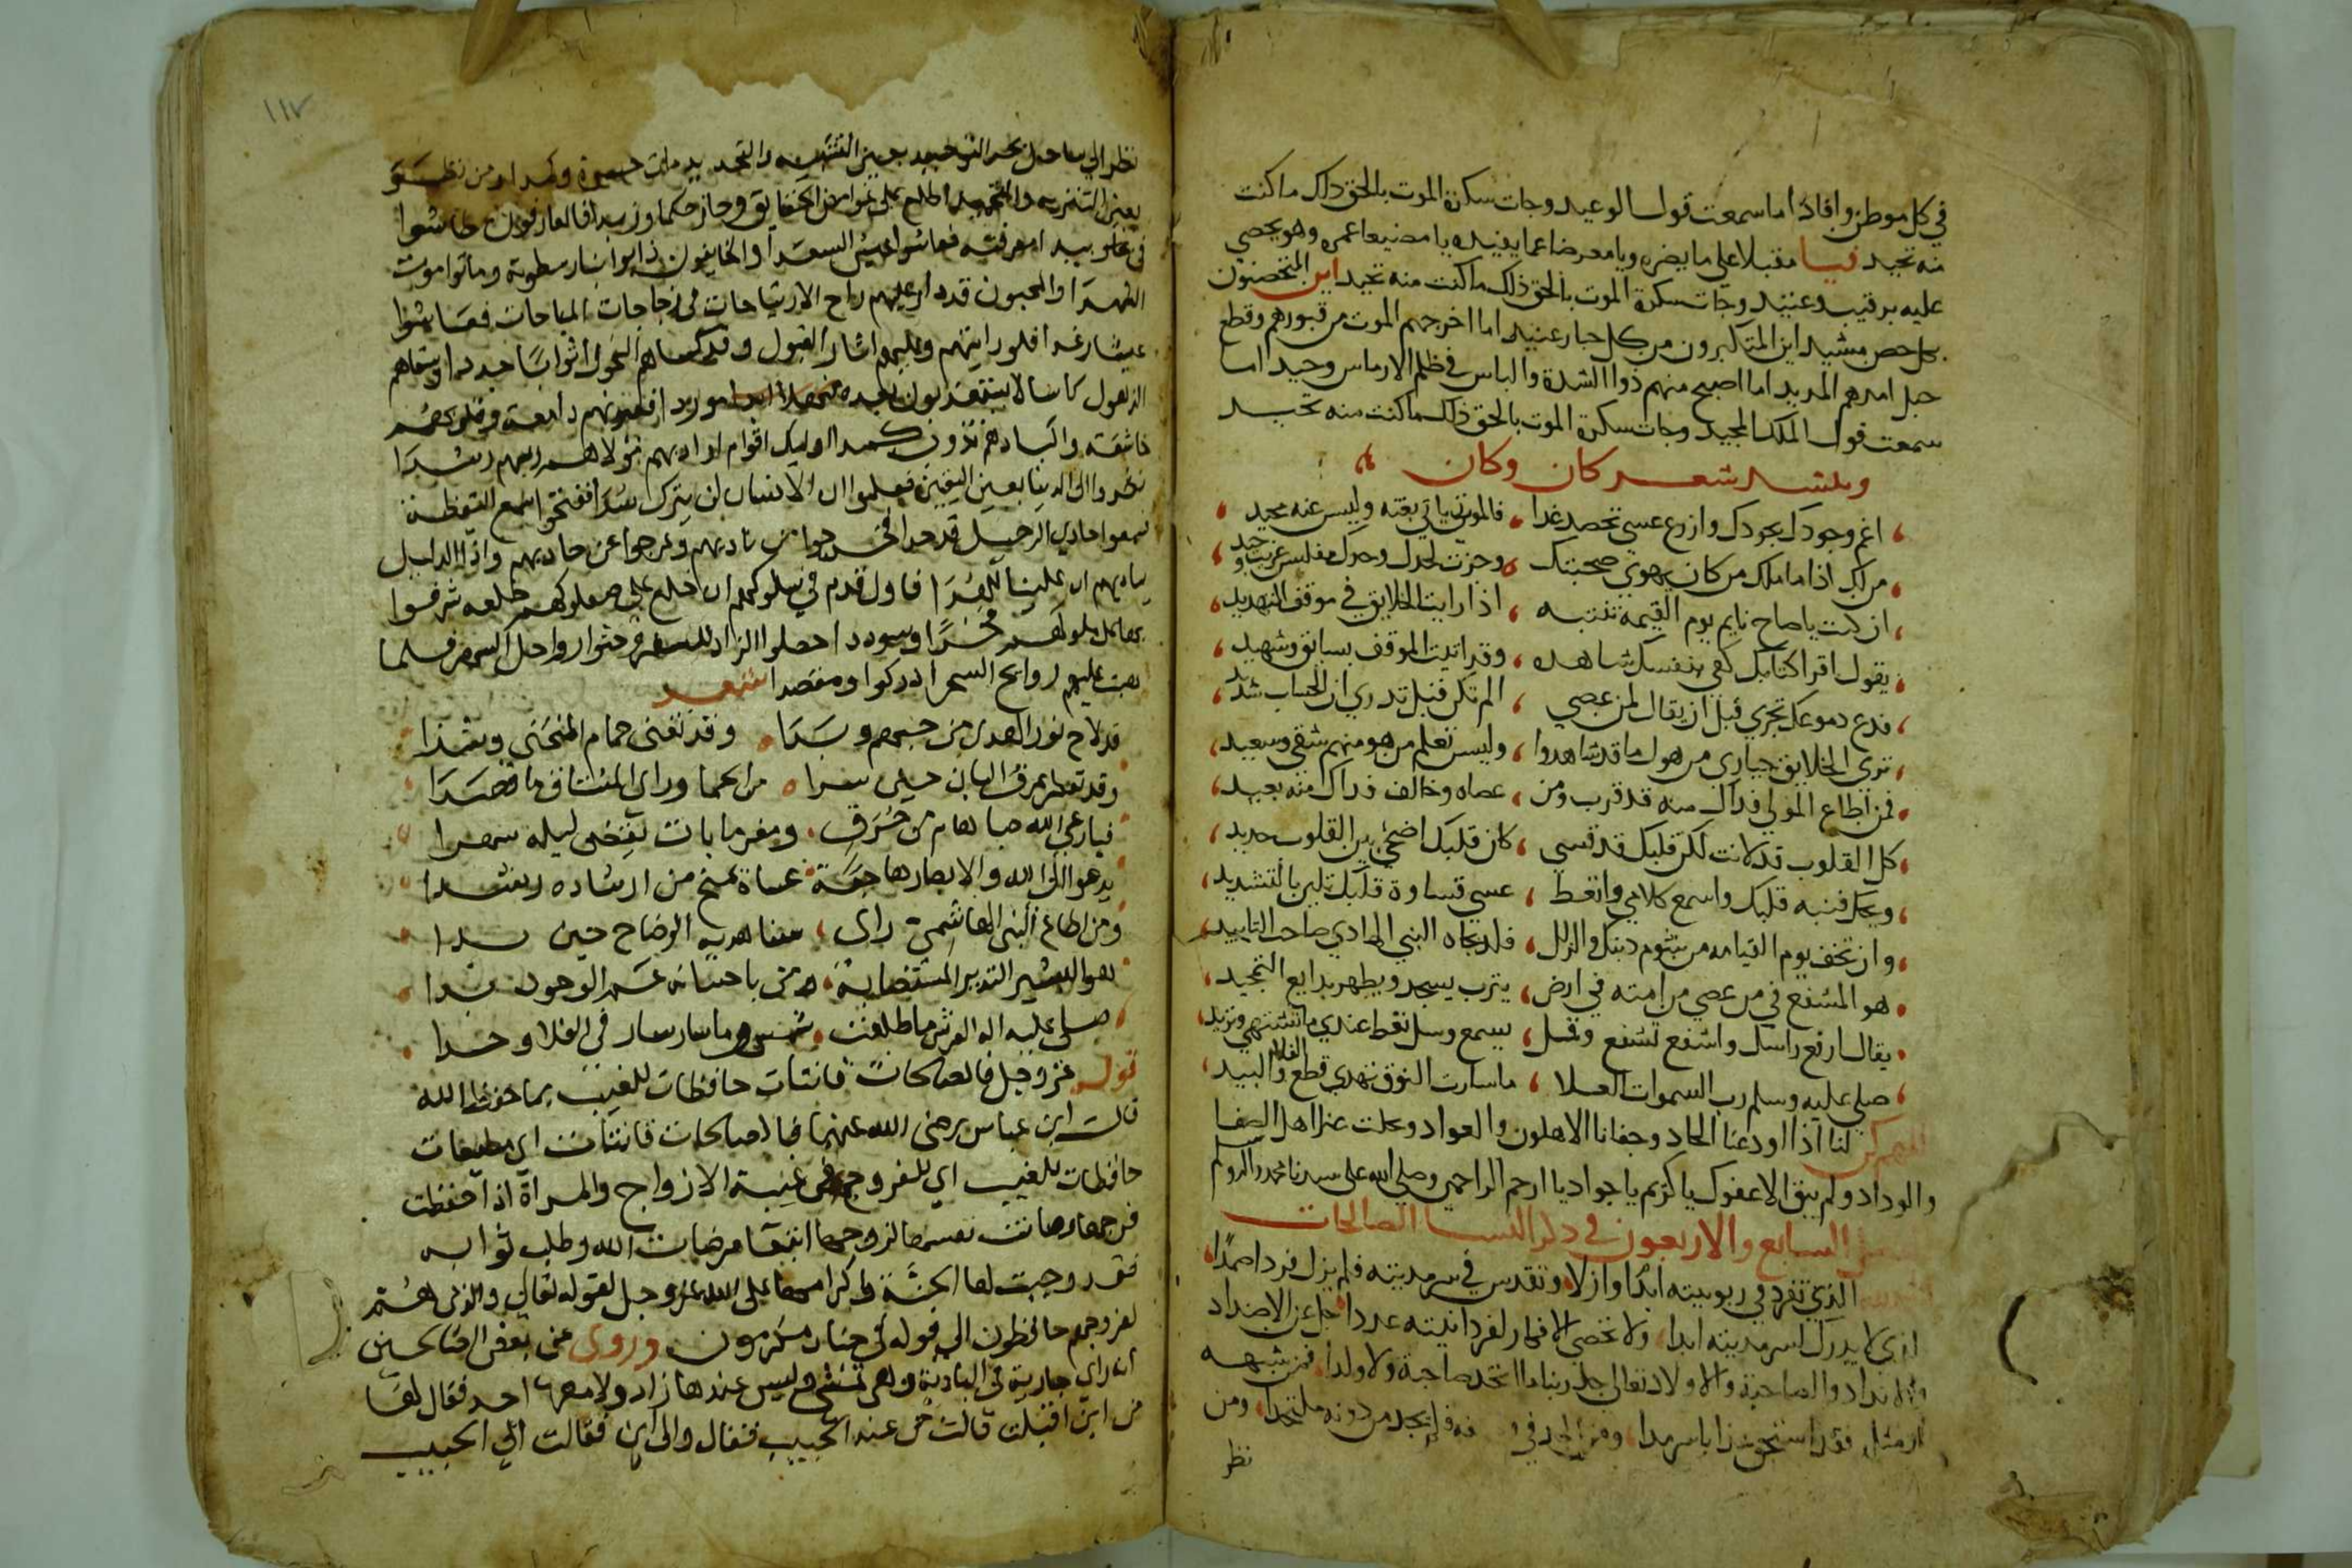 في كل موطن وافاد اما سمعت قول الوعيد وجات سكرة الموت بالحق ذلك ما كنت
منه تحيد فيا مقبلا على ما يضره ويا معرضا عما يفيده يا مضيعا عمره وهو يحصي
عليه برقيب وعتيد وجات سكرة الموت بالحق ذلك ما كنت منه تحيد اين المتحصنون
بكل حصن مشيد اين المتكبرون من كل جبار عنيد اما اخرجهم الموت من قبورهم وقطع
حبل امدهم المديد اما اصبح منهم ذوا الشدة والباس في ظلم الارماس وحيد اما
سمعت قول الملك المجيد وجات سكرة الموت بالحق ذلك ما كنت منه تحيد
وينشد شعر كان وكان
اغم وجودك بجودك وازرع عسى تحصد غدا فالموت ياتي بغته وليس عنه محيد
من لك اذا ما ملك من كان يهوي صحبتك وحزت لحدك وحدك مفلس غريب وحيد
ان كنت يا صاح نايم يوم القيمه تنتبه اذا رايت الخلايق في موقف التهديد
يقول اقرا كتابك كفى بنفسك شاهده وقد اتيت الموقف بسايق وشهيد
فدع دموعك تجري قبل ان يقال لمن عصي الم تكن قبل تدري ان الحساب شديد
تري الخلايق حياري من هول ما قد شاهدوا وليس تعلم من هو منهم شقي وسعيد
فمن اطاع المولي فذاك منه قد قرب ومن عصاه وخالف فذاك منه بعيد
كل القلوب قد لانت لكن قلبك قد قسي كان قلبك اضحي بين القلوب حديد
ويحك فنبه قلبك واسمع كلامي واتعظ عسى قساوة قلبك تلين بالتشديد
وان تخف يوم القيامه من شوم ذنبك والزلل فلذ بجاه النبي الهادي صاحب التاييد
هو المشفع في من عصي من امته في ارض يثرب يسجد ويظهر بدايع التمجيد
يقال ارفع راسك واشفع تشفع وقل يسمع وسل تعط عندي ما تشتهي وتزيد
صلى عليه وسلم رب السموات العلا ما سارت النوق تهدي قطع الفلا والبيد
اللهم كن لنا اذا اودعنا الحاد وجفانا الاهلون والعواد وتخلت عنا اهل الصفا
والوداد ولم يبق الا عفوك يا كريم يا جواد يا ارحم الراحمين وصلى الله على سيدنا محمد واله وسلم
السابع والاربعون في ذكر النسا الصالحات
الذي تفرد في ربوبيته ابدا وازلا وتقدس في سرمديته فلم يزل فردا صمدا
الذي لا يدرك لسرمديته ابدا ولا تحصي الافكار لفردانيته عددا جل عن الاضداد
والانداد والصاحبة والاولاد تعالى جد ربنا ما اتخذ صاحبة ولا ولدا فمن شبهه
او مثل فقد استحق عذابا سرمدا ومن الحد في فلم يجد من دونه ملتحدا ومن
نظر
١١٧
نظر الي ساحل بحر التوحيد بعين التشبيه والتحديد مات حسرة وكمدا ومن نظر
بعين التنزيه والتمجيد اطلع على غوامض الحقايق وحاز حكما ورشدا فالعارفون عاشوا
في بيدا معرفته فعاشوا عيش السعدا والخايفون ذابوا بنار سطوته وماتوا موت
الشهدا والمحبون قد دار عليهم راح الارتياحات في زجاجات المباحات فعاشوا
عيشا رغدا فلو رايتهم وعليهم اثار القبول وقد كساهم النحول اثوابا جددا وسقاهم
الذهول كاسا لا يستعذبون بعده موردا فعيونهم دامعة وقلوبهم
خاشعة واكبادهم تذوب كمدا اوليك اقوام اراد بهم مولاهم ربهم رشدا
نظروا الى الدنيا بعين اليقين فعلموا ان الانسان لن يترك سدا ففتحوا سمع اليقظة
فسمعوا حادي الرحيل قد حدا فخرجوا من ناديهم وعرجوا عن حاديهم واذا الدليل
يناديهم ان علينا للهدا فاول قدم في سلوكهم ان خلع على صعلوكهم خلعه شرفوا
بها على ملوكهم فخرا وسوددا حصلوا الزاد للسفر وحثوا رواحل السهر فلما
هبت عليهم روايح السحر ادركوا ومقصدا شعر
قد لاح نور الهدى من جبهم وبدا وقد تغنى حمام المنحنى وشدا
وقد تعطر عرف البان حين سرا من الحما وراى المشتاق ما قصدا
فيا رعى الله صبا هام من حرق ومغرما بات يقضى ليله سهدا
يدعو الى الله والابصار هاجعة عساه يمنح من ارشاده رشدا
ومن اطاع النبي الهاشمي راى سنا هديه الوضاح حين بدا
هو البشير النذير المستضا به ومن باحسانه عم الوجود ندا
صلى عليه اله العرش ما طلعت شمس وما سار سار في الفلا وحدا
قوله عز وجل فالصالحات قانتات حافظات للغيب بما حفظ الله
قال ابن عباس رضى الله عنهما فالصالحات قانتات اي مطيعات
حافظات للغيب اي للفروج في غيبة الازواج والمراة اذا حفظت
فرجها وصانت نفسها لزوجها ابتغا مرضات الله وطلب ثوابه
فقد وجبت لها الجنة وكرامتها على الله عز وجل لقوله تعالي والذين هم
لفروجهم حافظون الى قوله في جنات مكرمون وروى عن بعض الصالحين
انه راى جارية في البادية وهي تمشي وليس عندها زاد ولا معها احد فقال لها
من اين اقبلت قالت من عند الحبيب فقال والى اين فقالت الي الحبيب